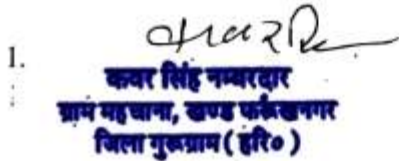 1.
कवर सिंह नम्बरदार
ग्राम महचाना, खण्ड फर्रूखनगर
जिला गुरूग्राम ( हरि० )